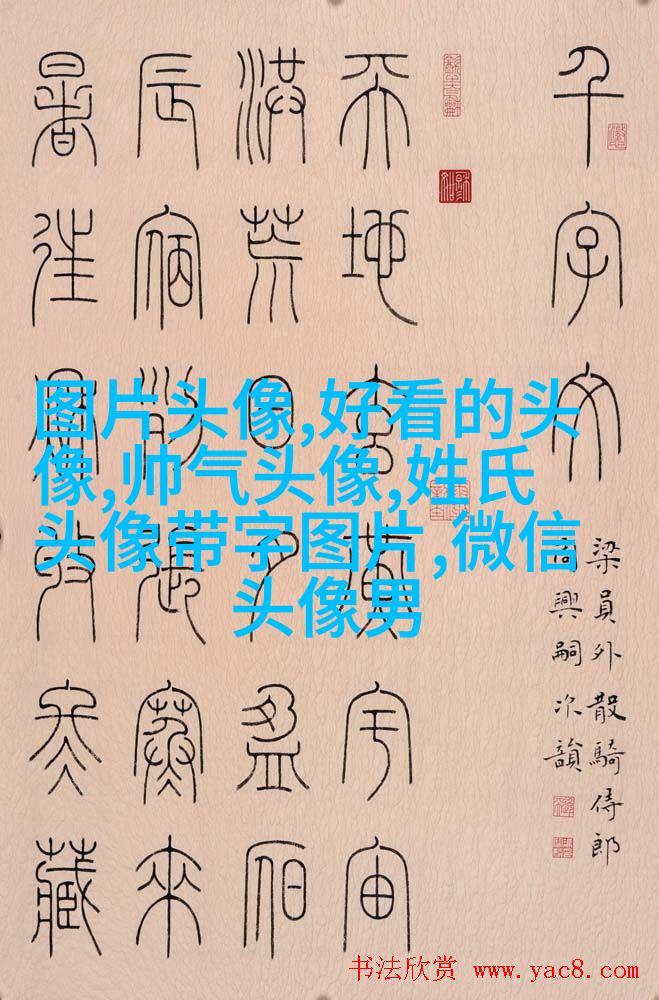 千字文
梁員外散騎侍郎
周興嗣次韻
天地玄黃宇宙
洪荒日月盈昃
辰宿列張寒來
暑往秋收冬藏
图片头像,好看的头
像,帅气头像,姓氏
头像带字图片,微信
头像男
书法欣赏 www.yac8.com